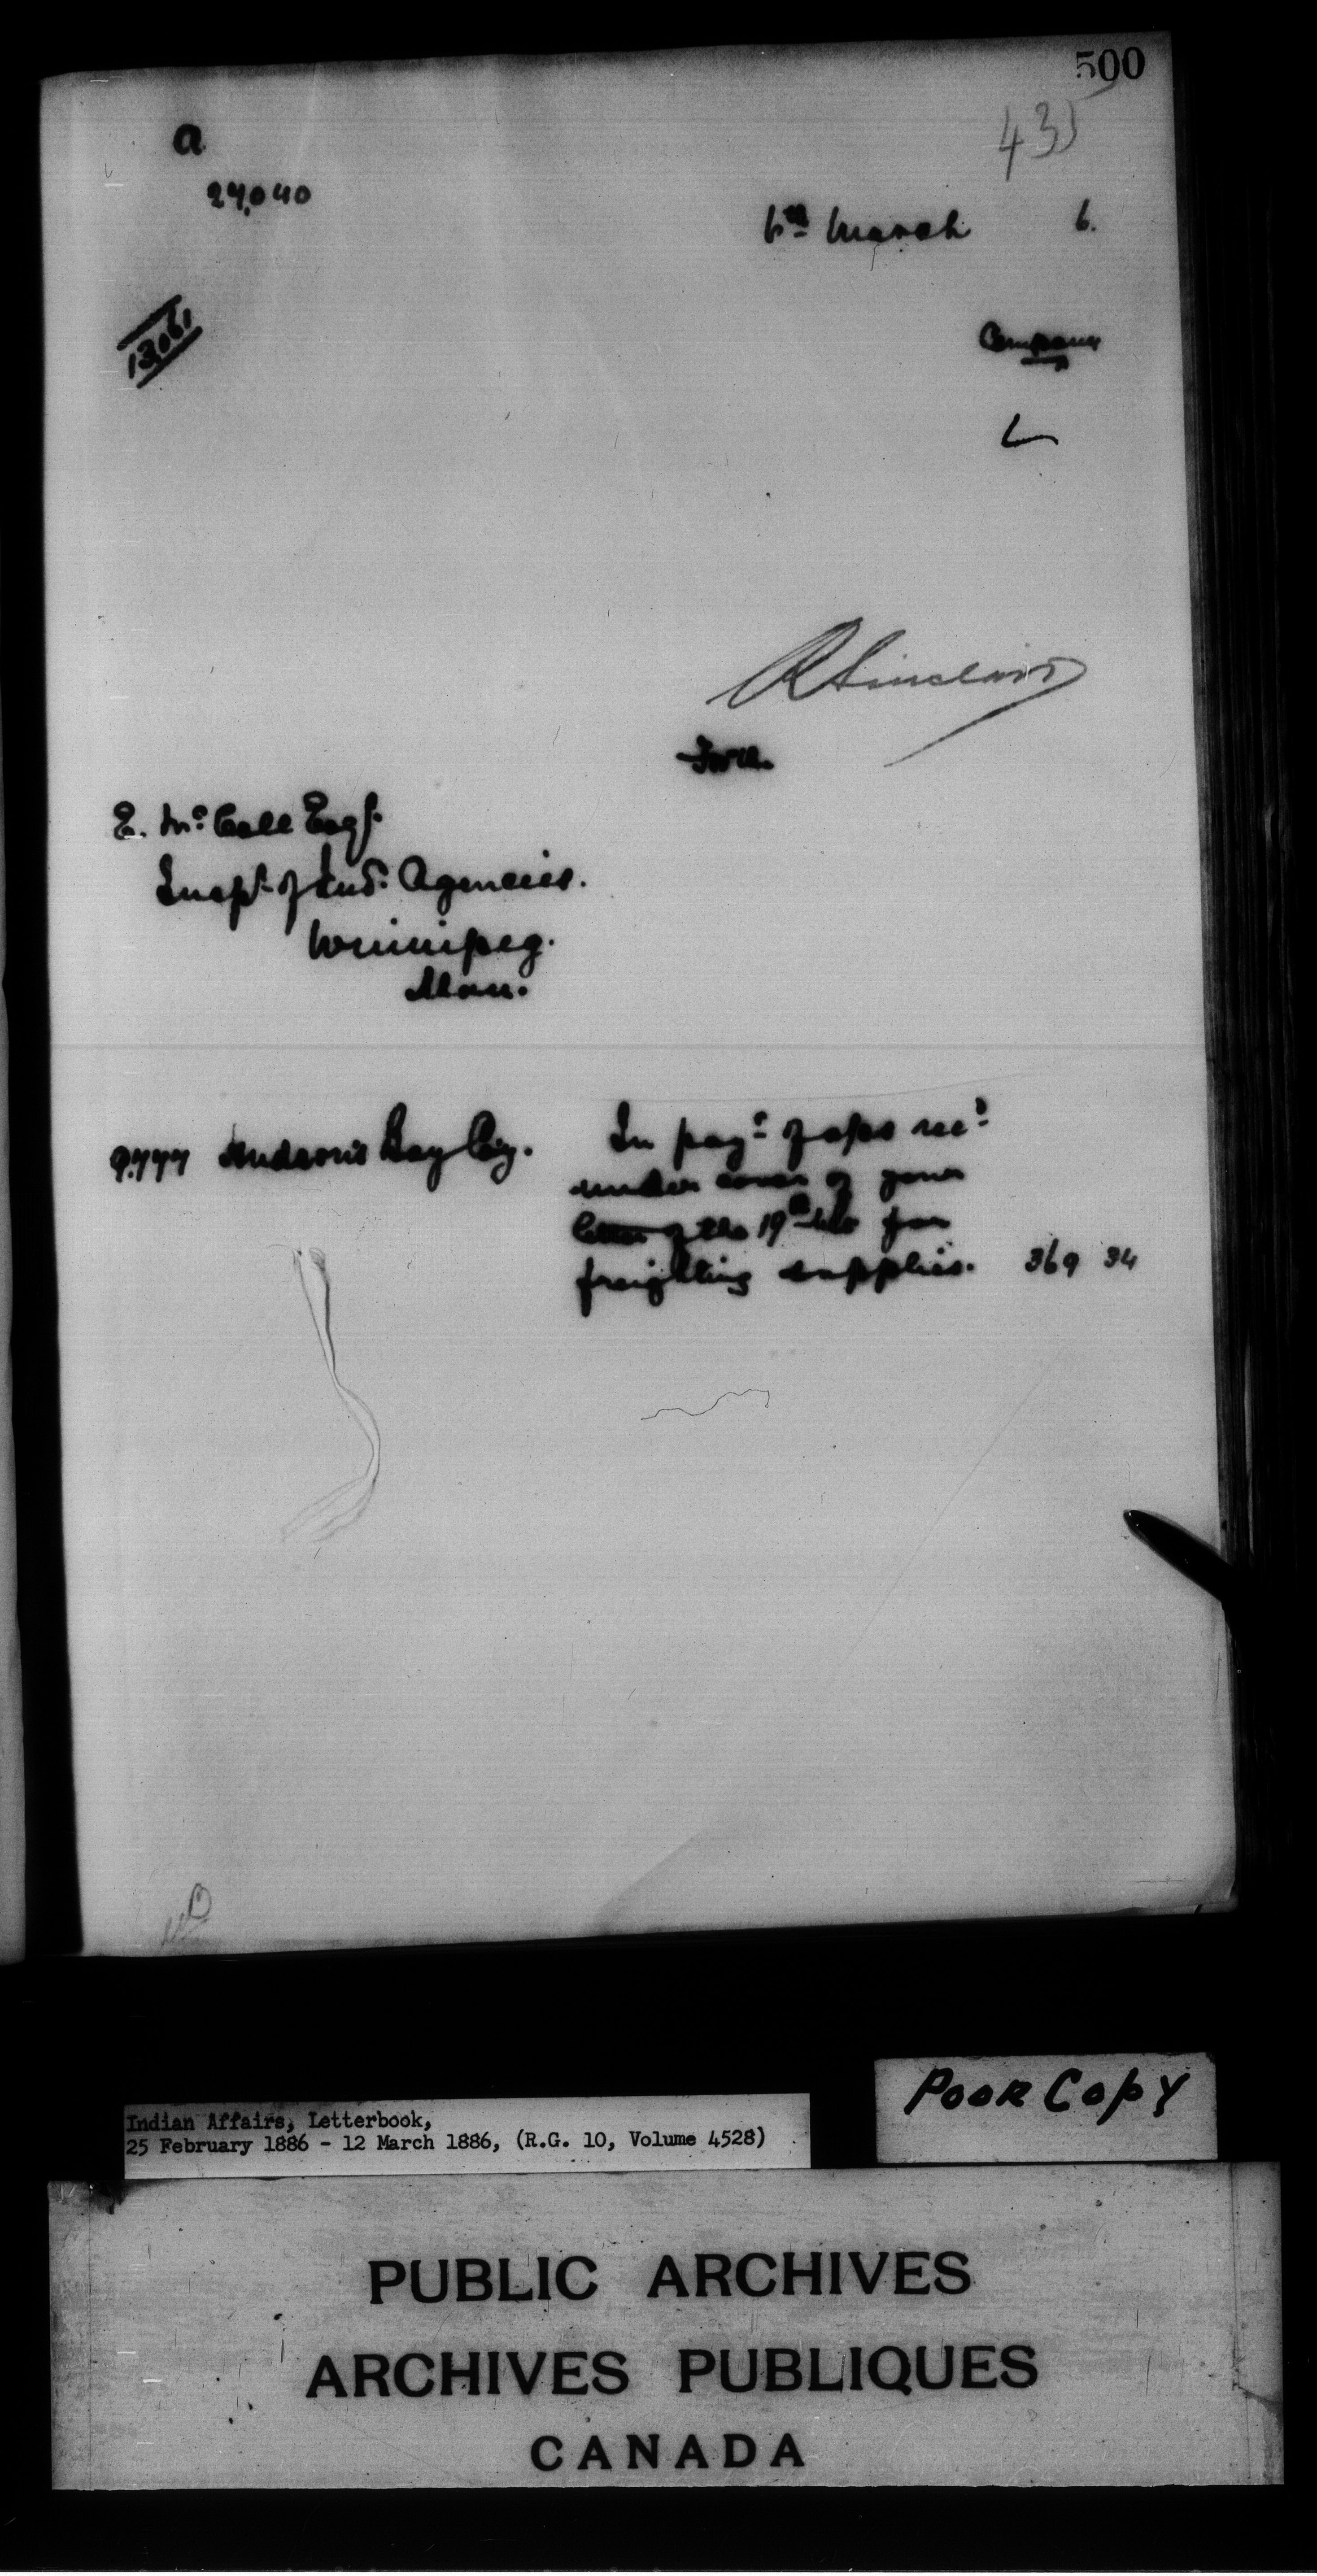 500
435
a
27,040
6th March 6.
13,061
Company
R Sinclair
For
E. McColl Esqr.
Inspr. of Ind. Agencies.
Winnipeg.
Man.
9,777 Hudson's Bay Coy. In payt. of a/cs recd.
under cover of your
letter of the 19th for
freighting supplies. 369 34
Poor Copy
Indian Affairs, Letterbook,
25 February 1886 - 12 March 1886, (R.G. 10, Volume 4528)
PUBLIC ARCHIVES
ARCHIVES PUBLIQUES
CANADA